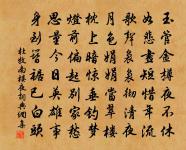 玉管金樽夜不休
如悲晝短惜年流
歌聲裊裊徹清夜
月色娟娟當翠樓
枕上暗驚垂釣夢
燈前偏起別家愁
思量今日英雄事
身到簪裾已白頭
杜牧南樓夜詞典網